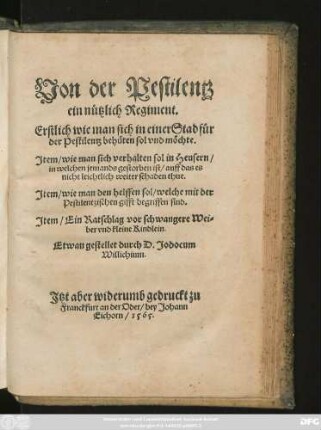 Von der Pestilentz
ein nützlich Regiment.
Erstlich wie man sich in einer Stad für
der Pestilentz behüten sol vnd möchte.
Item/wie man sich verhalten sol in Heusern/
in welchen jemands gestorben ist/auff das es
nicht leichtlich weiter schaden thue.
Item/wie man den helffen sol/welche mit der
Pestilentzischen gifft begriffen sind.
Item/Ein Ratschlag vor schwangere Wei-
ber vnd kleine Kindlein.
Etwan gestellet durch D. Jodocum
Willichium.
Itzt aber widerumb gedruckt zu
Franckfurt an der Oder/bey Johann
Eichorn/1565.